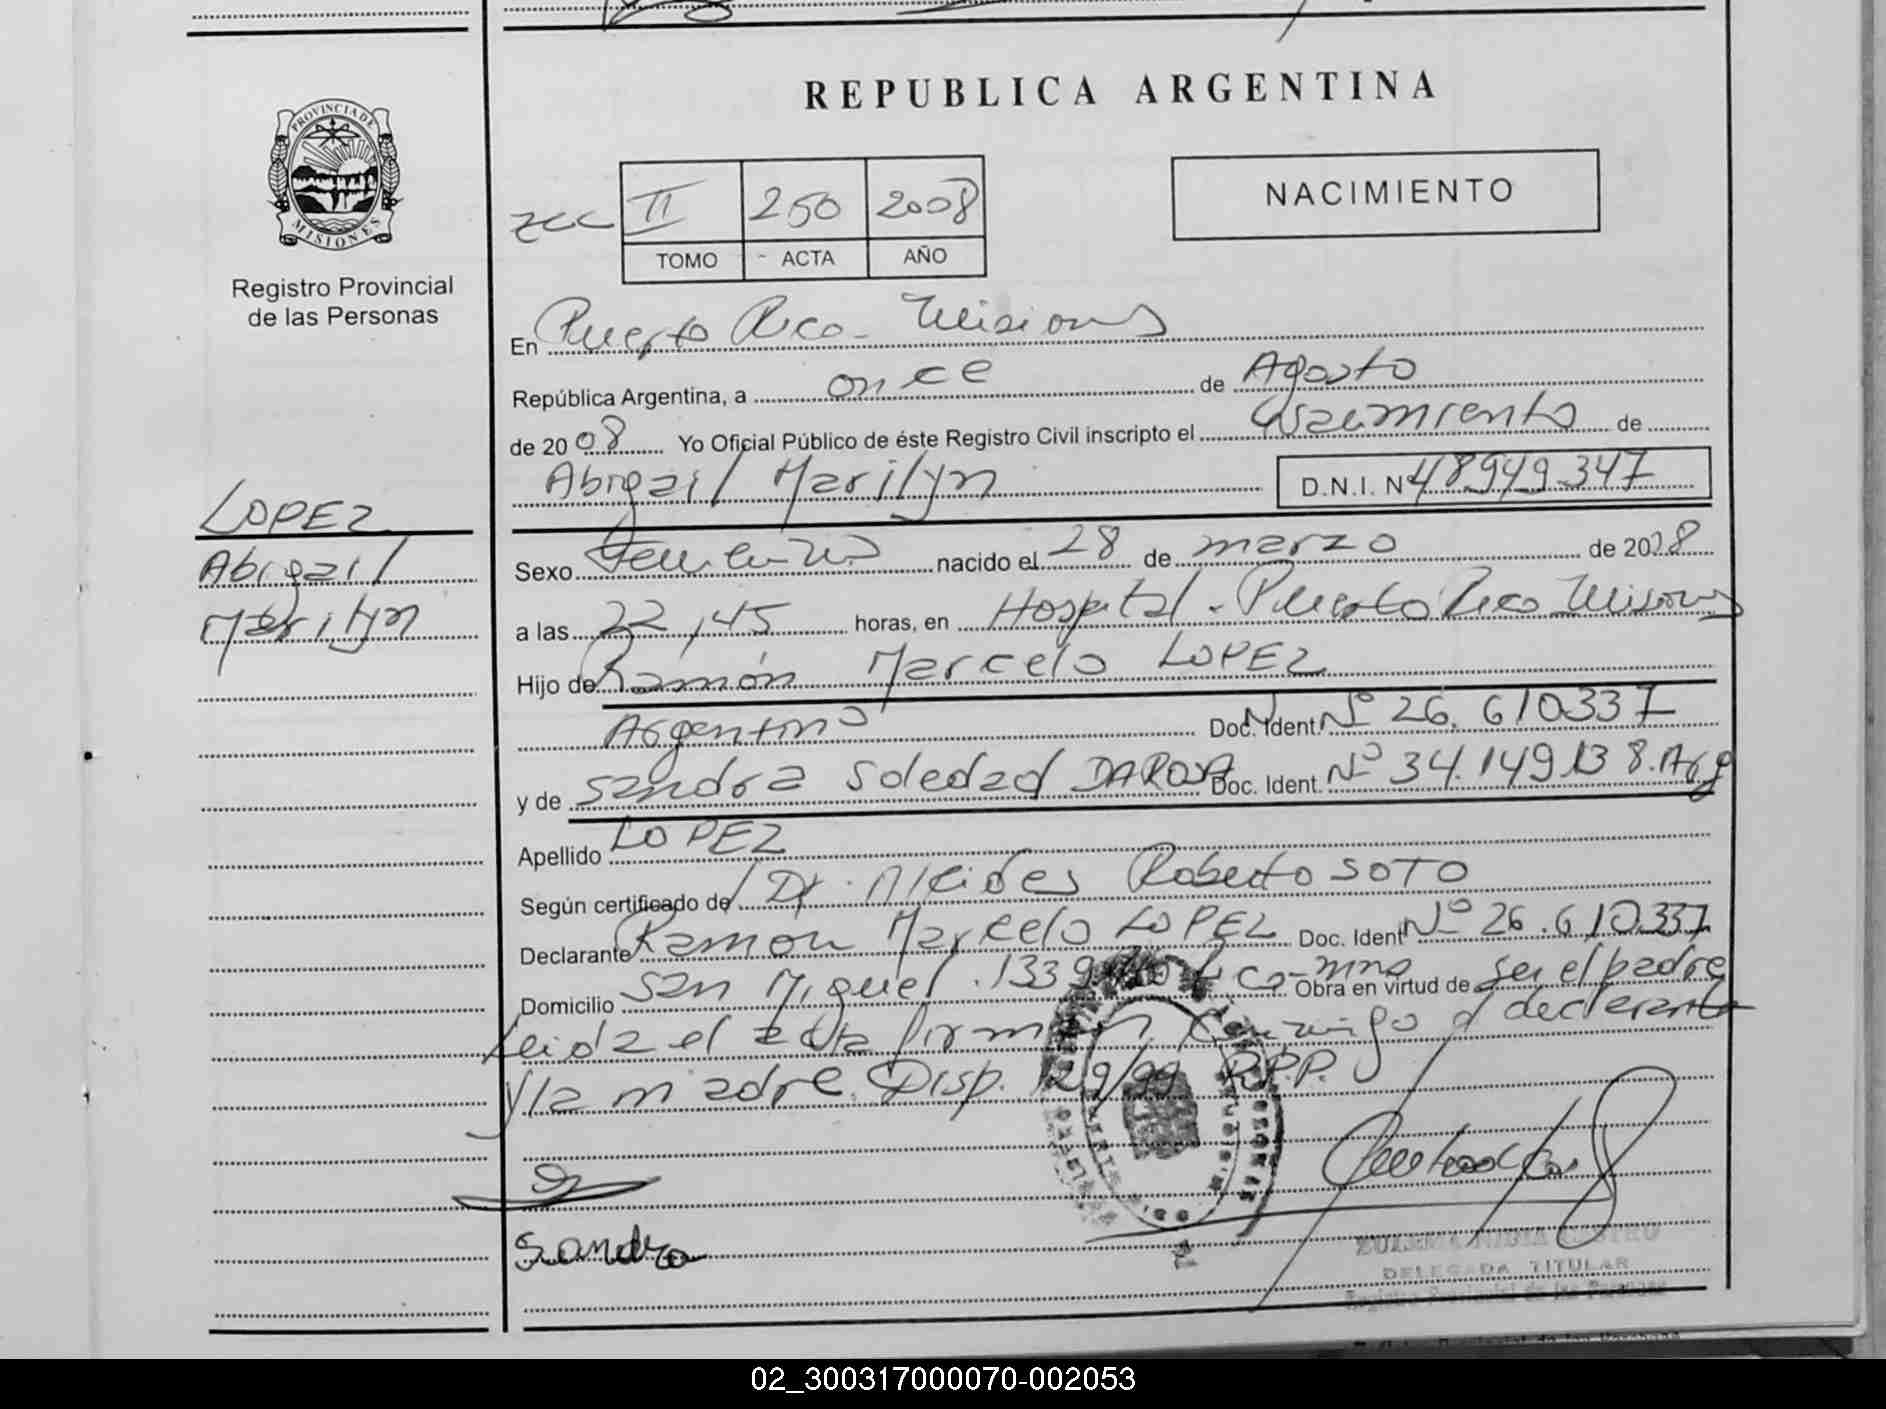 REPUBLICA ARGENTINA
PROVINCIA DE
MISIONES
Registro Provincial
de las Personas
II 250 2008
TOMO - ACTA AÑO
NACIMIENTO
En Puerto Rico - Misiones
República Argentina, a once de Agosto
de 2008 Yo Oficial Público de éste Registro Civil inscripto el nacimiento de
Abigail Marilyn D.N.I. Nº 48949.347
LOPEZ
Abigail
Marilyn
Sexo Femenino nacido el 28 de marzo de 2008
a las 22,45 horas, en Hospital - Puerto Rico Misiones
Hijo de Ramón Marcelo LOPEZ
Argentino Doc. Ident Nº 26.610.337
y de Sandra Soledad DAROSA Doc. Ident. Nº 34.149.138. Arg
Apellido LOPEZ
Según certificado de Dr. Alcides Roberto SOTO
Declarante Ramon Marcelo LOPEZ Doc. Ident Nº 26.610.337
Domicilio San Miguel 1339 Pto Rico - mns Obra en virtud de ser el padre
Leida el acta firman conmigo el declarante
y la madre. Disp. 129/99 R.P.P.
Sandra
ZULEMA NIDIA CASTRO
DELEGADA TITULAR
Registro Provincial de las Personas
02_300317000070-002053